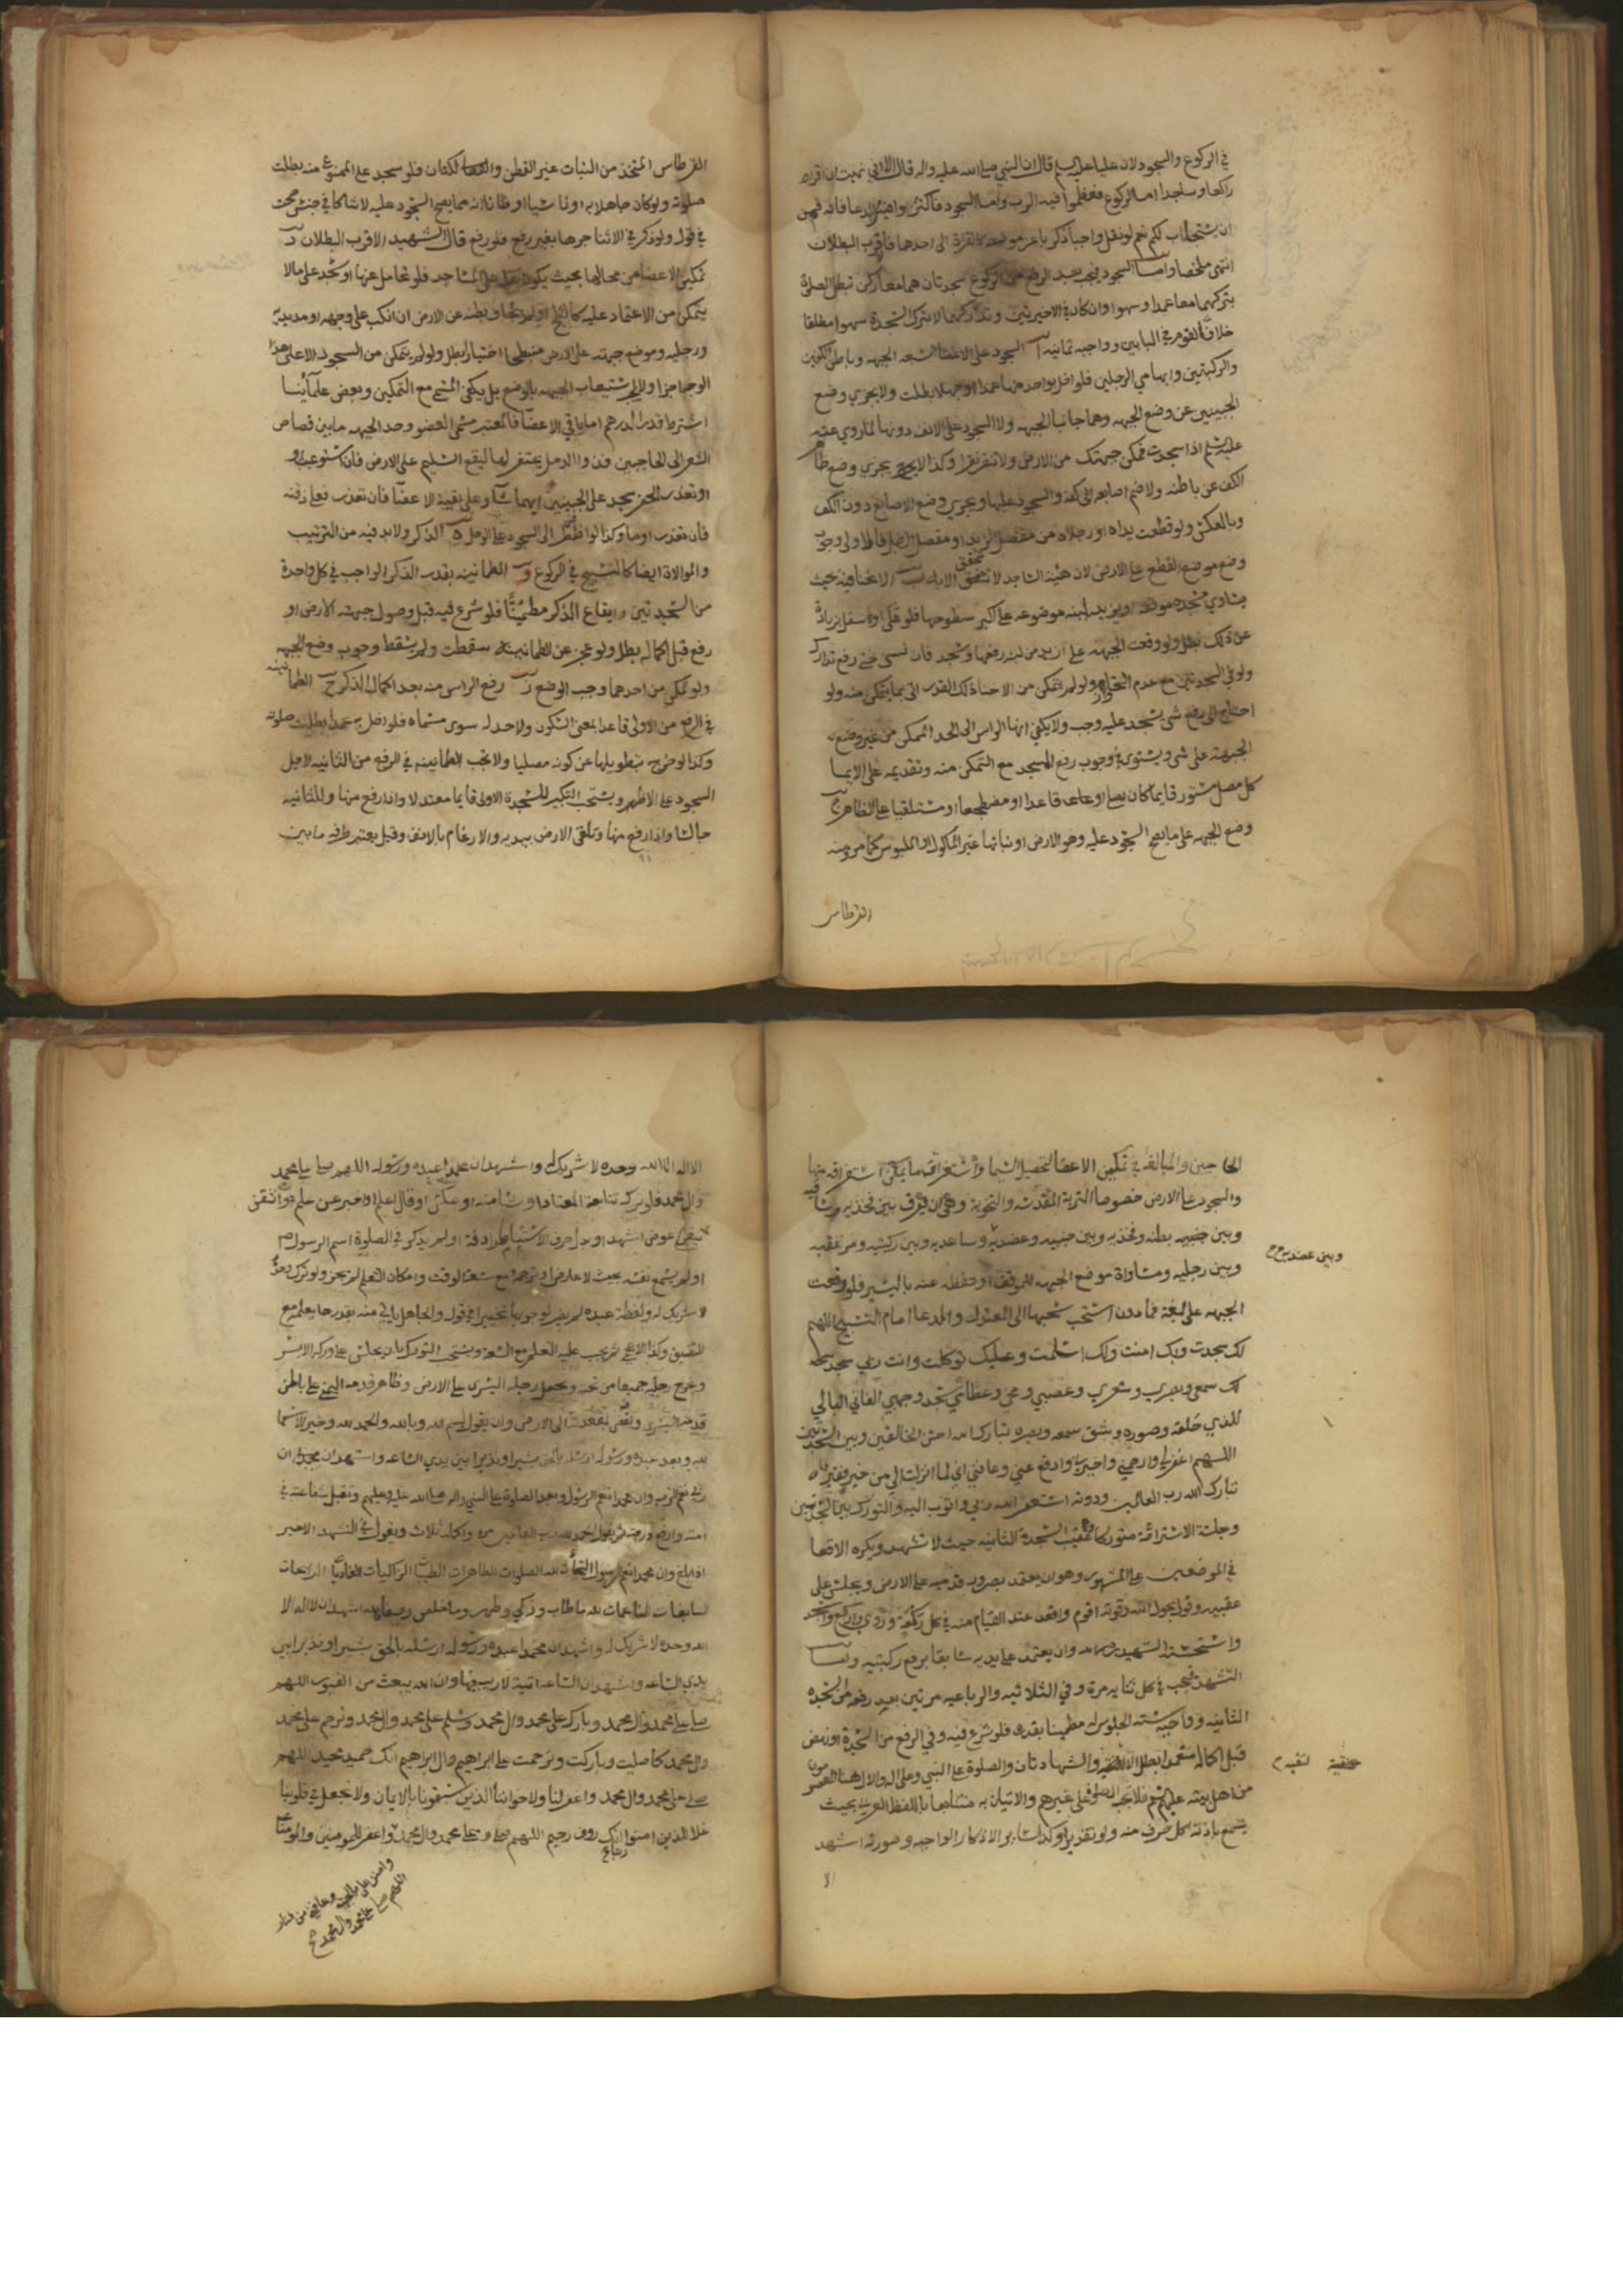 في الركوع والسجود لان عليا عليه السلم قال ان النبي صلى الله عليه واله قال الا اني نهيت ان اقرا
راكعا وساجدا اما الركوع فعظموا فيه الرب واما السجود فاكثروا فيه الدعا فانه قمن
ان يستجاب لكم نعم لو نقل واجبا ذكريا عن موضعه كالقراة الى احدها فاقرب البطلان
انتهى ملخصا واما السجود فيجب بعد الرفع من الركوع سجدتان هما معا ركن تبطل الصلوة
بتركهما معا عمدا وسهوا وان كان في الاخيرتين وتذكرهما لا بترك السجدة سهوا مطلقا
خلافا لقوم في البابين وواجبه ثمانية آ السجود على الاعضا السبعه الجبهه وباطن الكفين
والركبتين وابهامي الرجلين فلو اخل بواحد منها عمدا او جهلا بطلت ولا يجزي وضع
الجبينين عن وضع الجبهه وهما جانبا الجبهه ولا السجود على الانف دونها لما روي عنه
عليه السلم اذا سجدت فمكن جبهتك من الارض ولا تنقر نقرا وكذا لا يجزي وضع ظاهر
الكف عن باطنه ولا ضم اصابعه الى كفه والسجود عليها ويجزي وضع الاصابع دون الكف
وبالعكس ولو قطعت يداه او رجلاه من مفصل الزند او مفصل فالاولى وجوب
وضع موضع القطع على الارض لان هيئة الساجد لا تتحقق الا به ب الانحنا فيه حيث
يساوي مسجده موقفه او يزيد لبنه موضوعه على اكبر سطوحها فلو علي او اسفل بزيادة
عن ذلك بطل ولو وقعت الجبهه على ازيد من لبنه رفعها وسجد فان نسي حتى رفع تدارك
ولو في السجدتين مع عدم التجاوز ولو لم يتمكن من الانحنا ذلك القدر اتى بما يتمكن منه ولو
احتاج الى رفع شي يسجد عليه وجب ولا يكفي انهاء الراس الى الحد الممكن من غير وضع
الجبهة على شي ويستوي في وجوب رفع المسجد مع التمكن منه وتقديمه على الايما
كل مصل قايما كان يصلي او قاعدا او مضطجعا او مستلقيا على الظاهر ج
وضع الجبهه على ما يصح السجود عليه وهو الارض او نباتها غير الماكول او الملبوس كما مر ومنه
القرطاس
القرطاس المتخذ من النبات غير القطن والكتان فلو سجد على الممنوع منه بطلت
صلوته ولو كان جاهلا به او ناسيا او ظانا انه مما يصح السجود عليه لا شاكا في جنس صحت
في قول ولو ذكر في الاثنا جرها بغير رفع فلو رفع قال الشهيد الاقرب البطلان د
تمكين الاعضا من محالها بحيث يكون ثقله على المساجد فلو تحامل عنها او سجد على ما لا
يتمكن من الاعتماد عليه كالثلج او بطنه عن الارض ان انكب على وجهه او مد يديه
ورجليه ووضع جبهته على الارض منبطحا اختيارا بطل ولو لم يتمكن من السجود الا على هذا
الوجه اجزا ولا يجب استيعاب الجبهه بالوضع بل يكفي المسمى مع التمكين وبعض علمائنا
اشترط قدر الدرهم اما باقي الاعضا فالمعتبر مسمى العضو وحد الجبهه ما بين قصاص
الشعر الى الحاجبين فذوا الدمل يحتفر لها ليقع السليم على الارض فان استوعب او
او تعذر الحفر سجد على الجبينين ايهما شا وعلى بقية الاعضا فان تعذر فعلى ذقنه
فان تعذر اوما وكذا لو اضطر الى السجود على الوحل ه الذكر ولا بد فيه من الترتيب
والموالاة ايضا كالتسبيح في الركوع و الطمانينه بقدر الذكر الواجب في كل واحدة
من السجدتين وايقاع الذكر مطمئنا فلو شرع فيه قبل وصول جبهته الارض او
رفع قبل اكماله بطل ولو عجز عن الطمانينة سقطت ولم يسقط وجوب وضع الجبهه
ولو تمكن من احدهما وجب الوضع ز رفع الراس منه بعد اكمال الذكر ح الطمانينه
في الرفع من الاولى قاعدا بمعنى السكون ولا حد له سوى مسماه فلو اخل به عمدا بطلت صلوته
وكذا لو خرج بتطويلها عن كونه مصليا ولا تجب الطمانينه في الرفع من الثانيه لاجل
السجود على الاظهر ويستحب التكبير للسجدة الاولى قايما معتدلا واذا رفع منها وللثانيه
جالسا واذا رفع منها وتلقى الارض بيديه والارغام بالانف وقيل يعتبر طرفه ما بين
الحاجبين والمبالغه في تمكين الاعضا لتحصيل السيما واستغراق ما يمكن استغراقه منها
والسجود على الارض خصوصا التربة المقدسه والتخويه وهي ان يفرق بين فخذيه وساقيه
وبين جنبيه بطنه وفخذيه وبين جنبيه وعضديه وساعديه وبين ركبتيه ومرفقيه
وبين عضديه
وبين رجليه ومساواة موضع الجبهه للموقف او خفضه عنه باليسير فلو وقعت
الجبهه على لبنة فما دون استحب سحبها الى المعتدل والدعا امام التسبيح اللهم
لك سجدت وبك امنت ولك اسلمت وعليك توكلت وانت ربي سجد
لك سمعي وبصري وشعري وعصبي ومخي وعظامي سجد وجهي الفاني البالي
للذي خلقه وصوره وشق سمعه وبصره تبارك الله احسن الخالقين وبين السجدتين
اللهم اغفر لي وارحمني واجبرني وادفع عني وعافني اني لما انزلت الي من خير فقير
تبارك الله رب العالمين ودونه استغفر الله ربي واتوب اليه والتورك بين السجدتين
وجلسة الاستراحة متوركا عقيب السجدة الثانيه حيث لا تشهد ويكره الاقعا
في الموضعين على المشهور وهو ان يعتمد بصدور قدميه على الارض ويجلس على
عقبيه وقول بحول الله وقوته اقوم واقعد عند القيام منه في كل ركعة وروي واركع واسجد
واستحبه الشهيد رحمه الله وان يعتمد على يديه سابقا برفع ركبتيه واما
التشهد فيجب في كل ثنائيه مرة وفي الثلاثيه والرباعيه مرتين بعد رفعه من السجدة
الثانيه وواجبه سته الجلوس له مطمينا بقدره فلو شرع فيه وفي الرفع من السجدة او نهض
قبل اكماله متعمدا بطل والشهادتان والصلوة على النبي وعلى اله والال هنا المعصومون
من اهل بيته عليهم السلم فلا تجب الصلوة على غيرهم والاتيان به متتابعا باللفظ العربي بحيث
يسمع باذنه كل حرف منه ولو تقديرا وكذا ساير الاذكار الواجبه وصورته اشهد
الا اله الا الله وحده لا شريك له واشهد ان محمدا عبده ورسوله اللهم صل على محمد
وال محمد فلو ترك تتابعه المعتاد او شيئا منه او عكس او قال اعلم او اخبر عن علم او اتيقن
عوض اشهد او بدل حرف الاستثنا بمرادفة او لم يذكر في الصلوة اسم الرسول
او لم يسمع نفسه بحيث لا عارض او ترجمه مع سعة الوقت وامكان التعلم لم يجز ولو ترك وحده
لا شريك له ولفظة عبده لم يضر لوجوبها تخييرا في قول والجاهل ياتي منه بقدر ما يعلم مع
الضيق وكذا الاعجمي ثم يجب عليه التعلم مع السعة ويستحب التورك بان يجلس على وركه الايسر
ويخرج رجليه جميعا من تحته ويجعل رجله اليسرى على الارض وظاهر قدمه اليمنى على باطن
قدمه اليسرى ويفضي بمقعدته الى الارض وان يقول بسم الله وبالله والحمد لله وخير الاسما
لله وبعد عبده ورسوله ارسله بالحق بشيرا ونذيرا بين يدي الساعه واشهد ان
ربي نعم الرب وان محمدا نعم الرسول وبعد الصلوة على النبي واله صلى الله عليه وعليهم وتقبل شفاعته في
امته وارفع درجته ثم يقول الحمد لله رب العالمين مرة واكمله ثلاث ويقول في التشهد الاخير
وان محمدا نعم الرسول التحيات لله الصلوات الطاهرات الطيبات الزاكيات الغاديات الرايحات
السابغات الناعمات لله ما طاب وزكي وطهر وما خلص وصفا فلله اشهد ان لا اله الا
الله وحده لا شريك له واشهد ان محمدا عبده ورسوله ارسله بالحق بشيرا ونذيرا بين
يدي الساعه واشهد ان الساعة اتية لا ريب فيها وان الله يبعث من في القبور اللهم
صل على محمد وال محمد وبارك على محمد وال محمد وسلم على محمد وال محمد وترحم على محمد
وال محمد كما صليت وباركت وترحمت على ابراهيم وال ابراهيم انك حميد مجيد اللهم
صل على محمد وال محمد واغفر لنا ولاخواننا الذين سبقونا بالايمان ولا تجعل في قلوبنا
غلا للذين امنوا ربنا انك روف رحيم اللهم صل على محمد وال محمد واغفر للمومنين والمومنات
وامنن علي بالجنه وعافني من النار
اللهم صل على محمد وال محمد